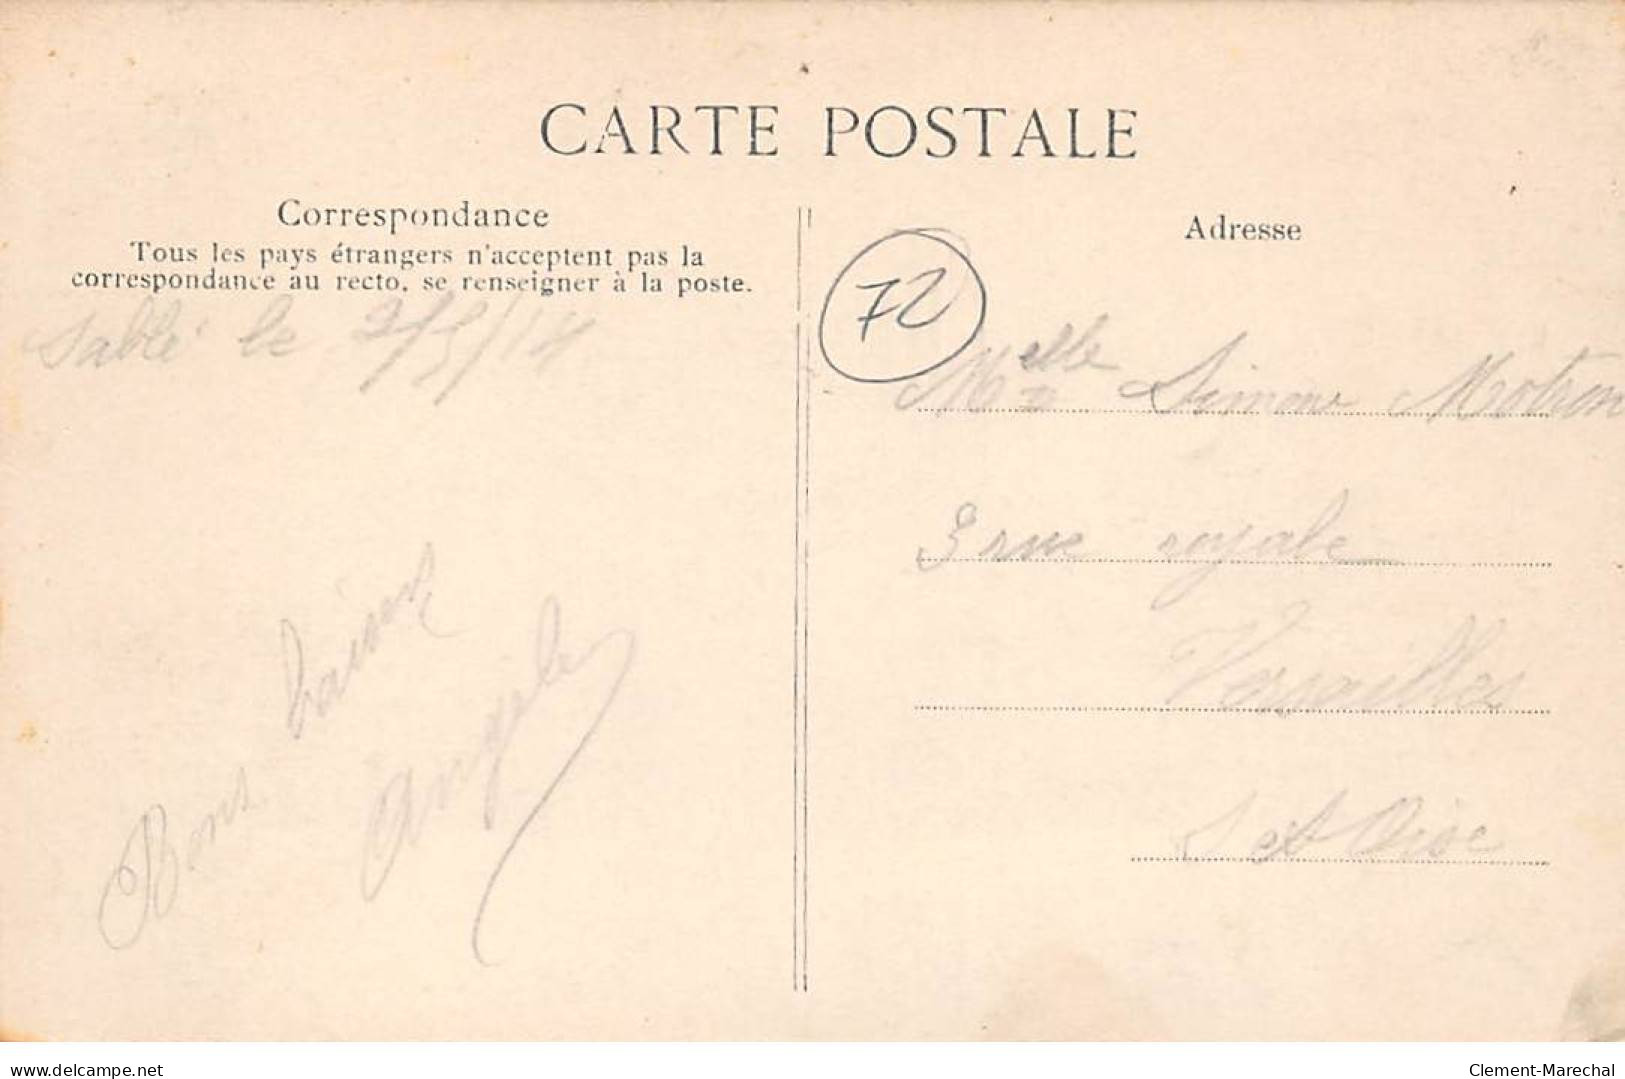 CARTE POSTALE
Correspondance
Tous les pays étrangers n'acceptent pas la
correspondance au recto, se renseigner à la poste.
Sablé le 2/5/14
Bons baisers
Angèle
72
Adresse
Melle Simone Motron
3 rue royale
Versailles
S et Oise
www.delcampe.net
Clement-Marechal